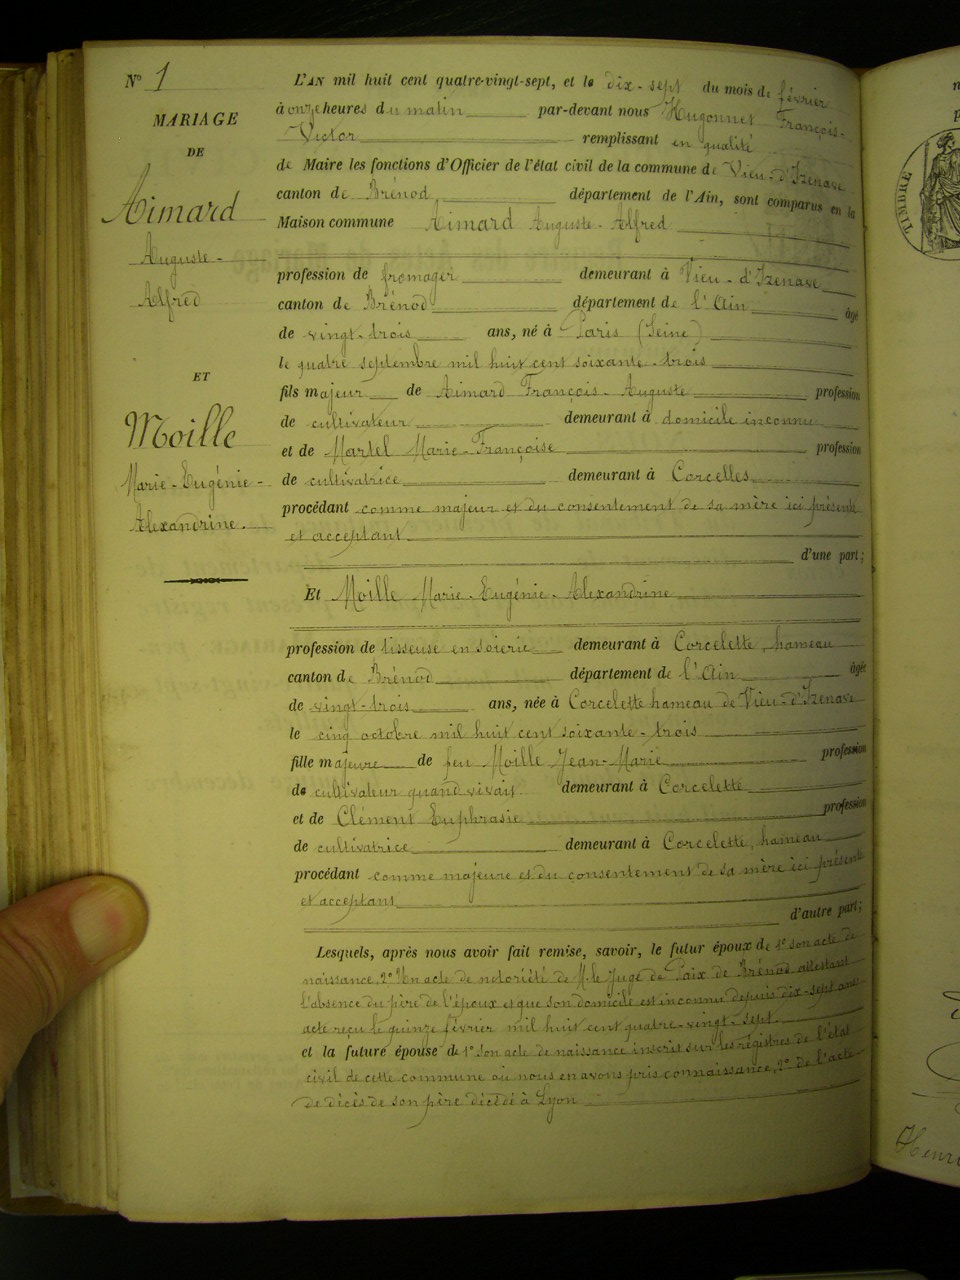 N° 1
MARIAGE
DE
Aimard
Auguste-
Alfred
ET
Moille
Marie-Eugénie-
Alexandrine.
L'AN mil huit cent quatre-vingt-sept, et le dix-sept du mois de février
à onze heures du matin par-devant nous Hugonnet François-
Victor remplissant en qualité
de Maire les fonctions d'Officier de l'état civil de la commune de Vieu-d'Izenave
canton de Brénod, département de l'Ain, sont comparus en la
Maison commune Aimard Auguste-Alfred
profession de fromager demeurant à Vieu-d'Izenave
canton de Brénod département de l'Ain âgé
de vingt-trois ans, né à Paris (Seine)
le quatre septembre mil huit cent soixante-trois
fils majeur de Aimard François-Auguste profession
de cultivateur demeurant à domicile inconnu
et de Martel Marie-Françoise profession
de cultivatrice demeurant à Corcelles
procédant comme majeur et du consentement de sa mère ici présente
et acceptant
d'une part;
Et Moille Marie-Eugénie-Alexandrine
profession de tisseuse en soierie demeurant à Corcelette, hameau
canton de Brénod département de l'Ain âgée
de vingt-trois ans, née à Corcelette hameau de Vieu-d'Izenave
le cinq octobre mil huit cent soixante-trois
fille majeure de feu Moille Jean-Marie profession
de cultivateur quand vivait demeurant à Corcelette
et de Clément Euphrasie profession
de cultivatrice demeurant à Corcelette, hameau
procédant comme majeure et du consentement de sa mère ici présente
et acceptant
d'autre part;
Lesquels, après nous avoir fait remise, savoir, le futur époux de 1° son acte de
naissance, 2° Un acte de notoriété de M. le Juge de Paix de Brénod attestant
l'absence du père de l'époux et que son domicile est inconnu depuis dix-sept ans
acte reçu le quinze février mil huit cent quatre-vingt-sept.
et la future épouse de 1° son acte de naissance inscrit sur les régistres de l'état
civil de cette commune où nous en avons pris connaissance, 2° de l'acte
de décès de son père décédé à Lyon
TIMBRE
Henri